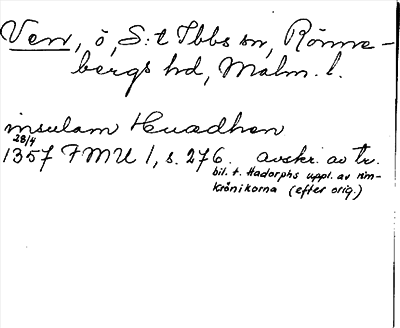 Ven, ö, S:t Ibbs sn, Rönne-
bergs hd, Malm. l.
insulam Huædhen
28/4
1357 FMU 1, s. 276. avskr. av tr.
bil. t. Hadorphs uppl. av rim-
krönikorna (efter orig.)